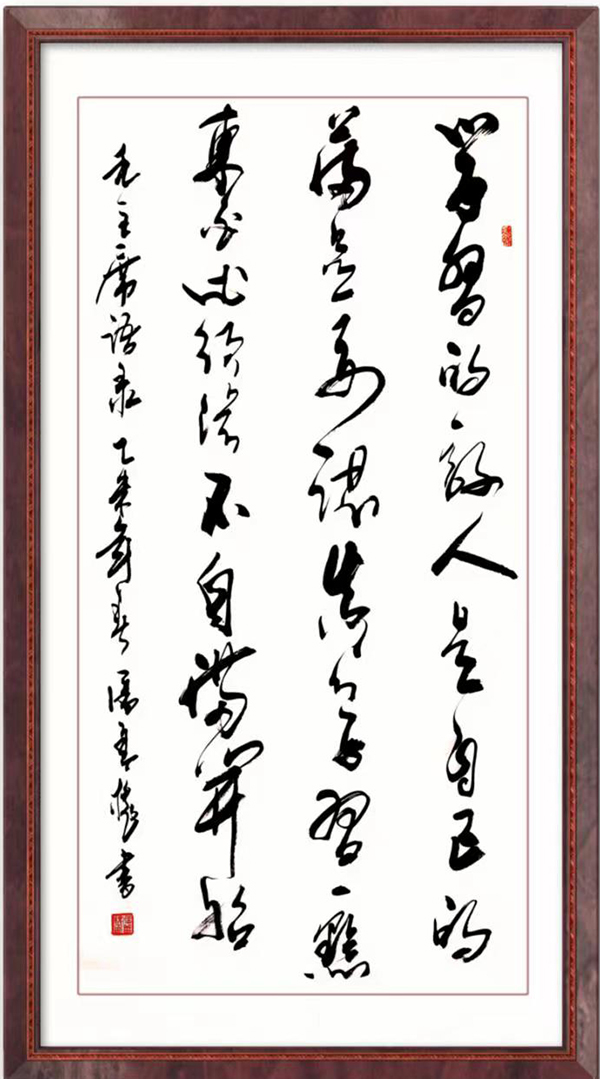 學習的敌人是自己的
满足要認真學習一點
東西必须從不自满開始
毛主席語录 乙未年春 書